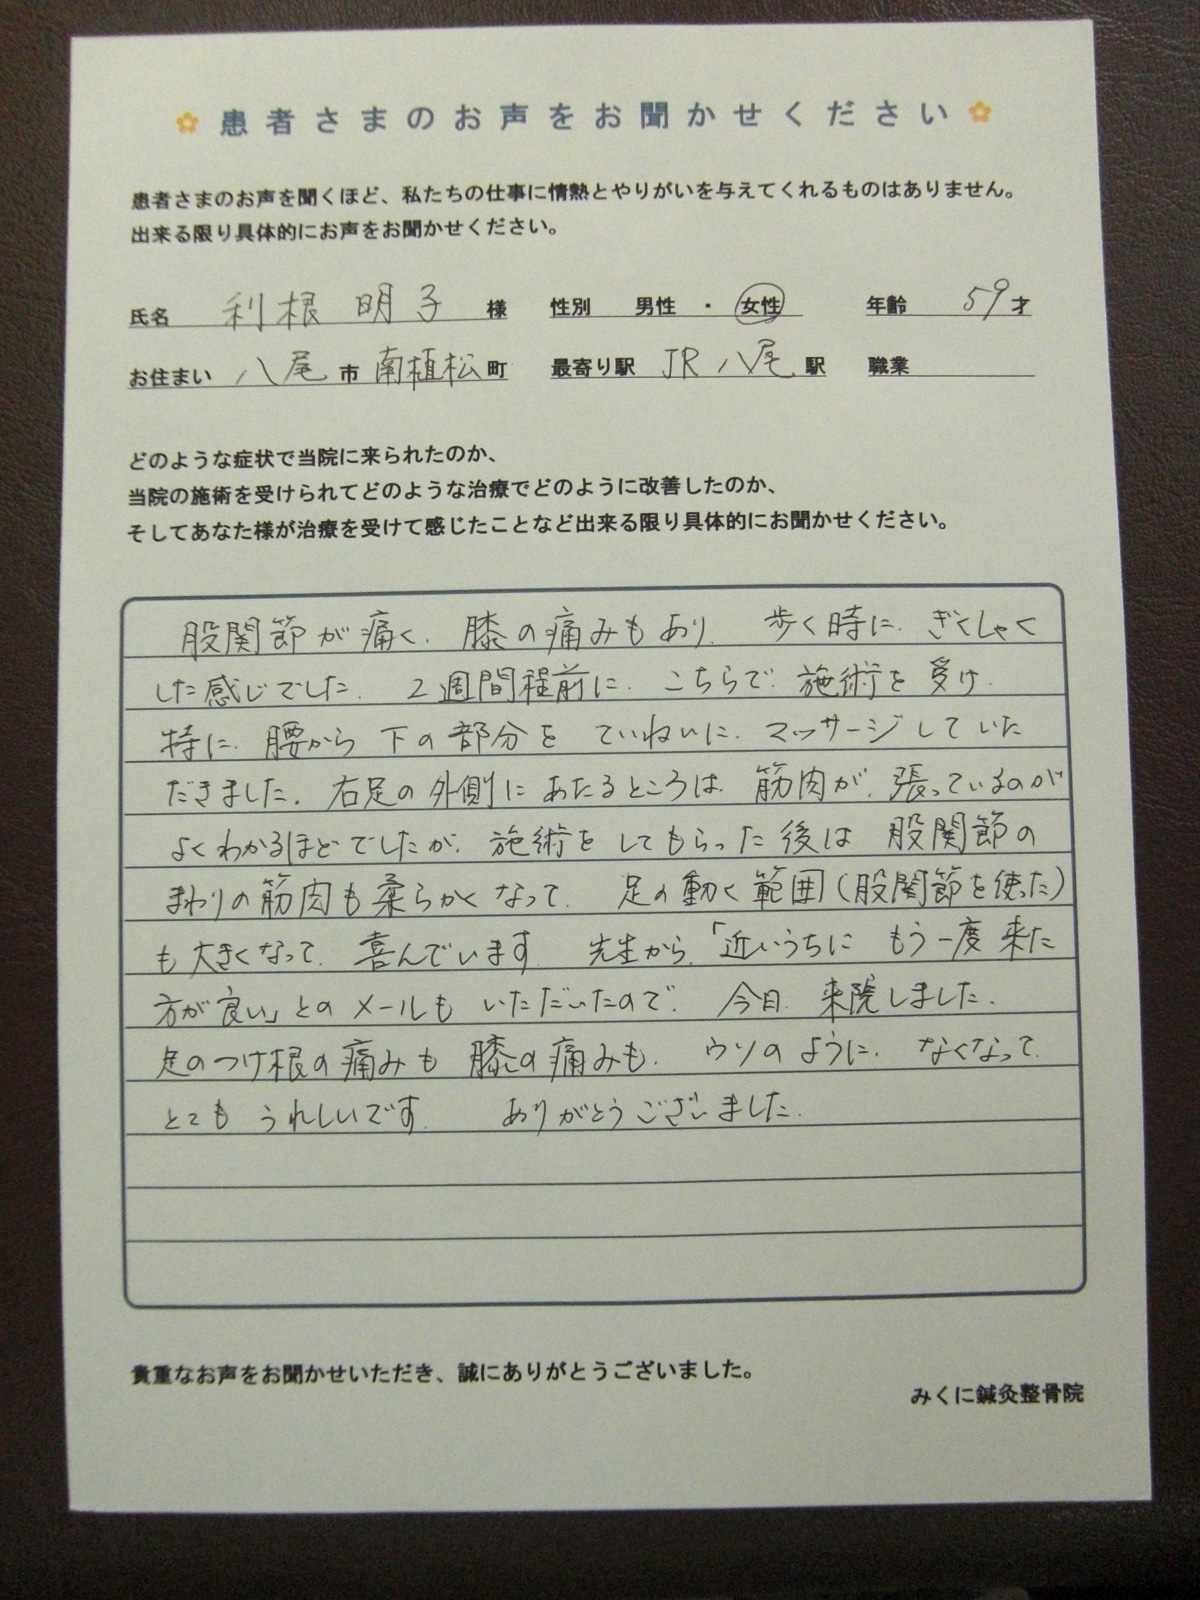 患者さまのお声をお聞かせください
患者さまのお声を聞くほど、私たちの仕事に情熱とやりがいを与えてくれるものはありません。
出来る限り具体的にお声をお聞かせください。
氏名 利根 明子 様 性別 男性 ・ 女性 年齢 59才
お住まい 八尾 市 南植松 町 最寄り駅 JR 八尾 駅 職業
どのような症状で当院に来られたのか、
当院の施術を受けられてどのような治療でどのように改善したのか、
そしてあなた様が治療を受けて感じたことなど出来る限り具体的にお聞かせください。
股関節が痛く、膝の痛みもあり、歩く時に、ぎくしゃく
した感じでした。2週間程前に、こちらで、施術を受け、
特に、腰から下の部分をていねいに、マッサージしていた
だきました。右足の外側にあたるところは、筋肉が、張っているのが
よくわかるほどでしたが、施術をしてもらった後は股関節の
まわりの筋肉も柔らかくなって、足の動く範囲(股関節を使った)
も大きくなって、喜んでいます。先生から、「近いうちにもう一度来た
方が良い」とのメールもいただいたので、今日、来院しました。
足のつけ根の痛みも膝の痛みも、ウソのように、なくなって、
とてもうれしいです。ありがとうございました。
貴重なお声をお聞かせいただき、誠にありがとうございました。
みくに鍼灸整骨院